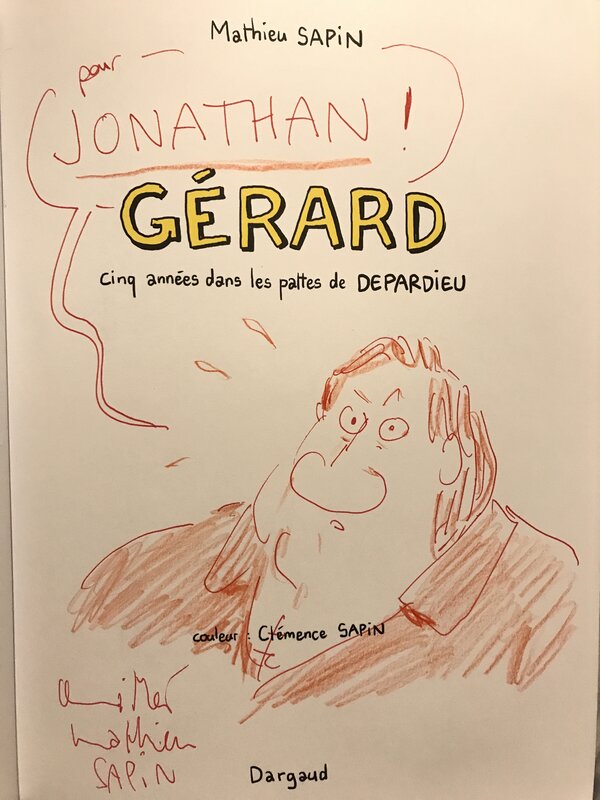 Mathieu SAPiN
pour
JONATHAN !
GÉRARD
Cinq années dans les pattes de DEPARDIEU
couleur : Clémence SAPiN
amitiés
mathieu
SAPiN
Dargaud